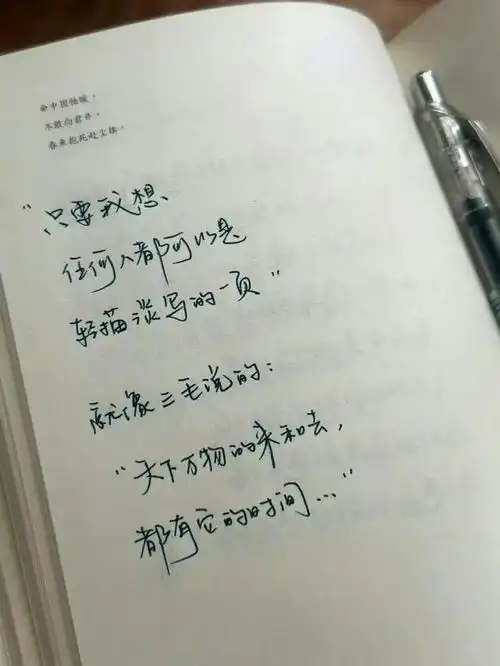 命中因怯懦，
不敢向君开，
春来抱死赴尘埃。
“只要我想
任何人都可以是
轻描淡写的一页”
就像三毛说的：
“天下万物的来和去，
都有它的时间...”